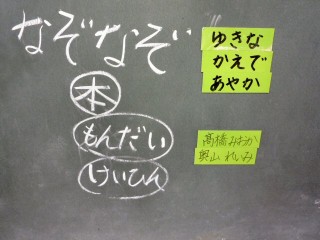 なぞなぞ
本
もんだい
けいひん
ゆきな
かえで
あやか
髙橋みおか
奥山れいみ